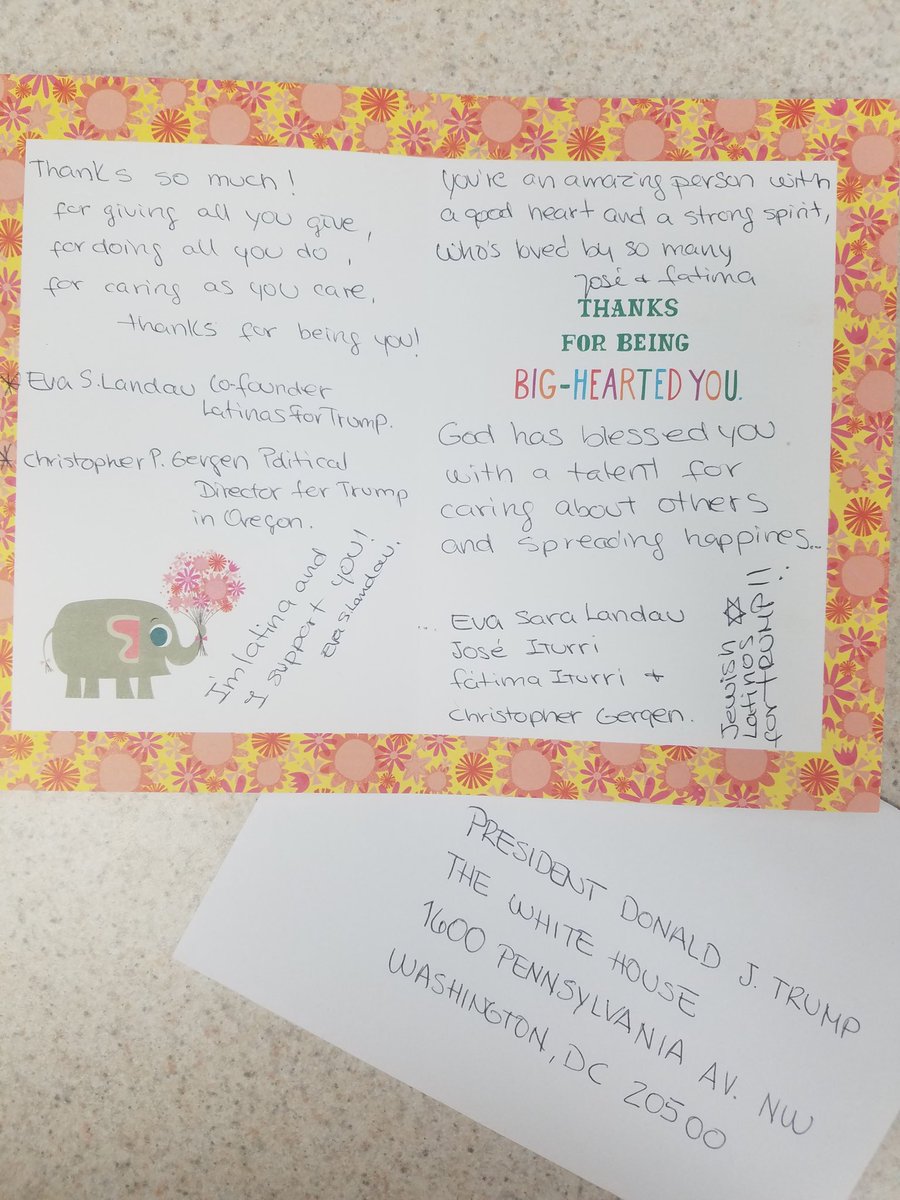 Thanks so much!
for giving all you give,
for doing all you do,
for caring as you care,
thanks for being you!
* Eva S. Landau Co-founder
Latinas for Trump.
* Christopher P. Gergen Political
Director for Trump
in Oregon.
I'm latina and
I support you!
Eva S. Landau.
You're an amazing person with
a good heart and a strong spirit,
who's loved by so many
José + fatima
THANKS
FOR BEING
BIG-HEARTED YOU.
God has blessed you
with a talent for
caring about others
and spreading happines...
... Eva Sara Landau
José Iturri
fátima Iturri +
Christopher Gergen.
Jewish ✡
Latinos
for TRUMP!!
PRESIDENT DONALD J. TRUMP
THE WHITE HOUSE
1600 PENNSYLVANIA AV. NW
WASHINGTON, DC 20500